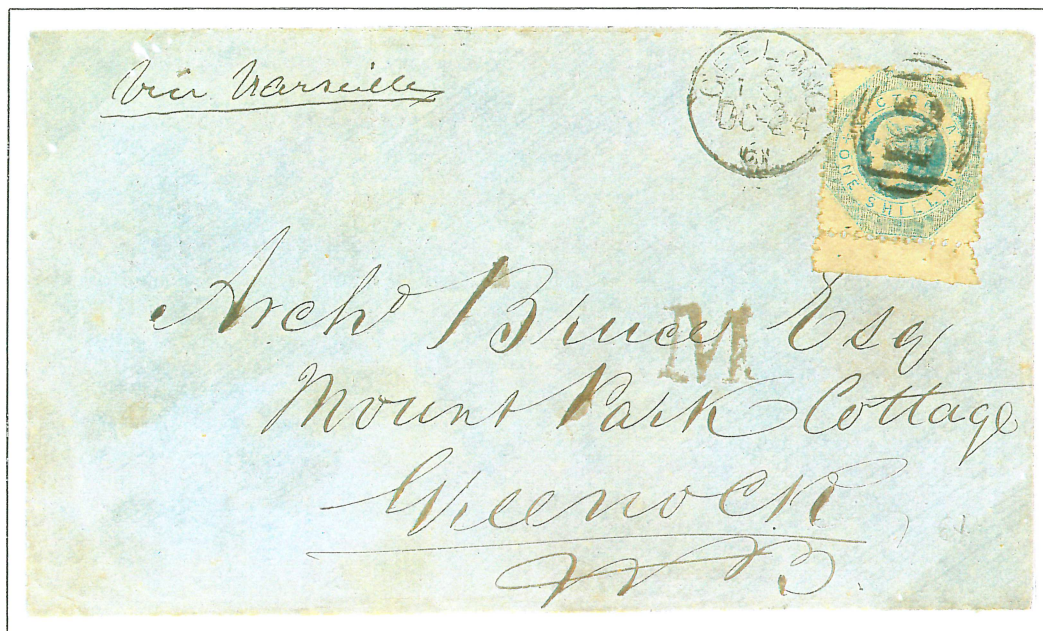 Via Marseille
GEELONG
DC 24
61
VICTORIA
ONE SHILLING
Archd Bruce Esq
M
Mount Park Cottage
Greenock
N B